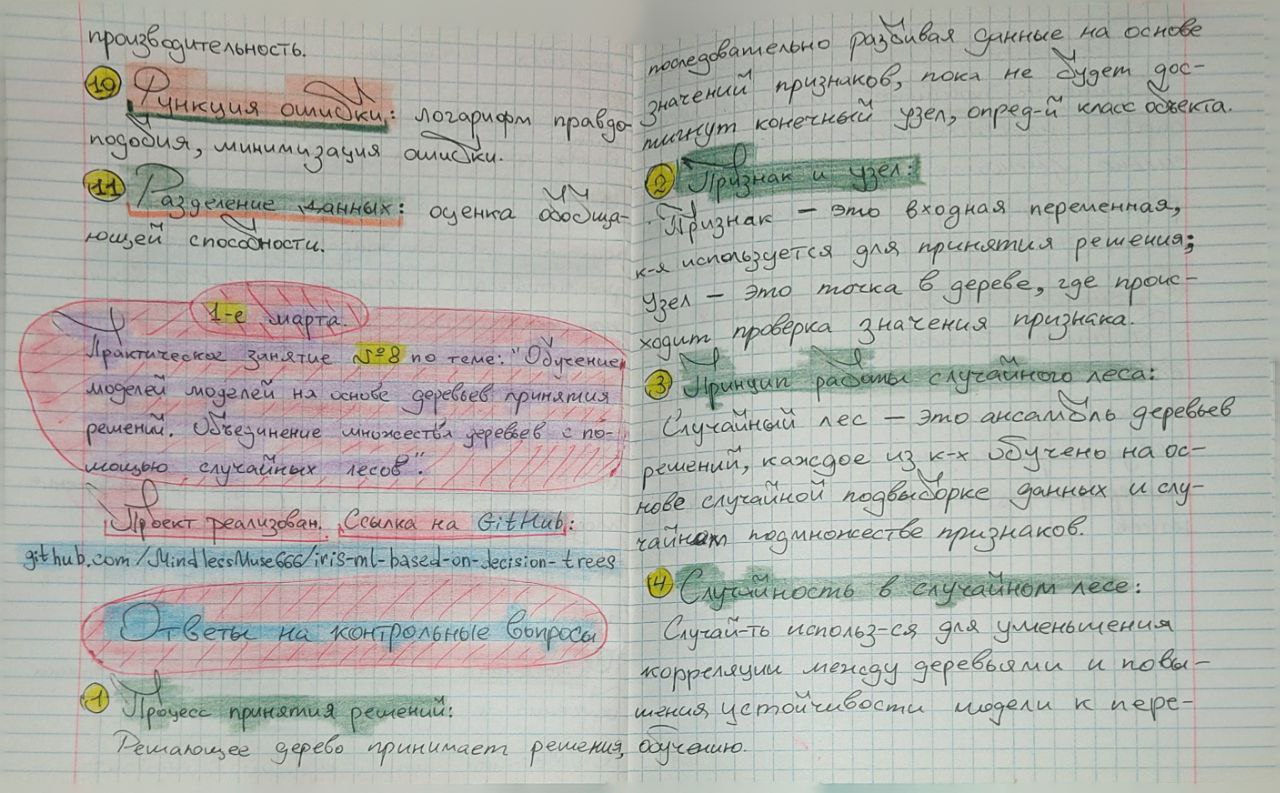 производительность.
10 Функция ошибки: логарифм правдо-
подобия, минимизация ошибки.
11 Разделение данных: оценка обобща-
ющей способности.
1-е марта.
Практическое занятие №8 по теме: "Обучение
моделей моделей на основе деревьев принятия
решений. Объединение множества деревьев с по-
мощью случайных лесов".
Проект реализован. Ссылка на GitHub:
github.com/MindlessMuse666/iris-ml-based-on-decision-trees
Ответы на контрольные вопросы
1 Процесс принятия решений:
Решающее дерево принимает решения,
последовательно разбивая данные на основе
значений признаков, пока не будет дос-
тигнут конечный узел, опред-й класс объекта.
2 Признак и узел:
Признак — это входная переменная,
к-я используется для принятия решения;
Узел — это точка в дереве, где проис-
ходит проверка значения признака.
3 Принцип работы случайного леса:
Случайный лес — это ансамбль деревьев
решений, каждое из к-х обучено на ос-
нове случайной подвыборке данных и слу-
чайном подмножестве признаков.
4 Случайность в случайном лесе:
Случай-ть использ-ся для уменьшения
корреляции между деревьями и повы-
шения устойчивости модели к пере-
обучению.